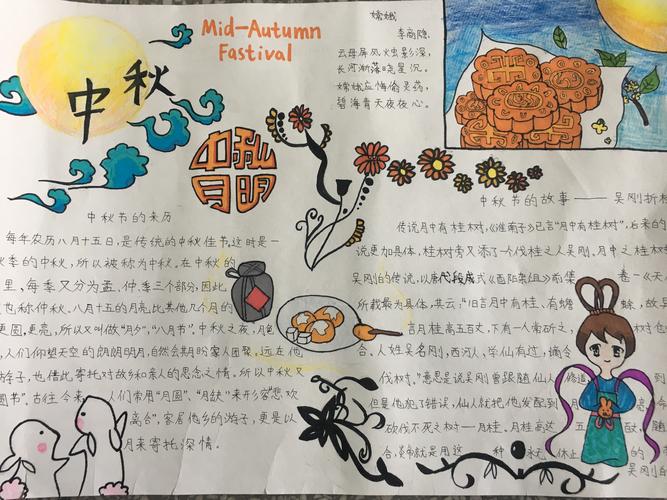 中秋
Mid-Autumn
Fastival
嫦娥
李商隐
云母屏风火虫影深,
长河渐落晓星沉。
嫦娥应悔偷灵药,
碧海青天夜夜心。
中秋
月明
中秋节的来历
每年农历八月十五日,是传统的中秋佳节。这时是一
秋季的中秋,所以被称为中秋。在中秋的
里,每季又分为孟、仲、季三个部分,因此
也称仲秋。八月十五的月亮比其他几个月的
更圆,更亮,所以又叫做"月夕","八月节"。中秋之夜,月色
,人们仰望天空的朗朗明月,自然会期盼家人团聚。远在他
游子,也借此寄托对故乡和亲人的思念之情。所以中秋又
圆节"。古往今来,人们常用"月圆"、"月缺"来形容"悲欢
离合",客居他乡的游子,更是以
月来寄托深情。
中秋节的故事——吴刚折桂
传说月中有桂树,《淮南子》已言"月中有桂树",后来的
说更加具体,桂树旁又添了一个伐桂之人吴刚。月中之桂树
吴刚的传说,以唐代段成式《酉阳杂俎》前集 卷一《天
所载最为具体,共云:"旧言月中有桂、有蟾 蜍,故异
言月桂高五百丈,下有一人常斫之, 树创
合。人姓吴名刚,西河人,学仙有过,谪令
伐树。"意思是说吴刚曾跟随仙人 修道,
但是他犯了错误,仙人就把他发配到 月
砍伐不死之树——月桂。月桂高达 五
就是用这 种 永 休止 的
吴刚的